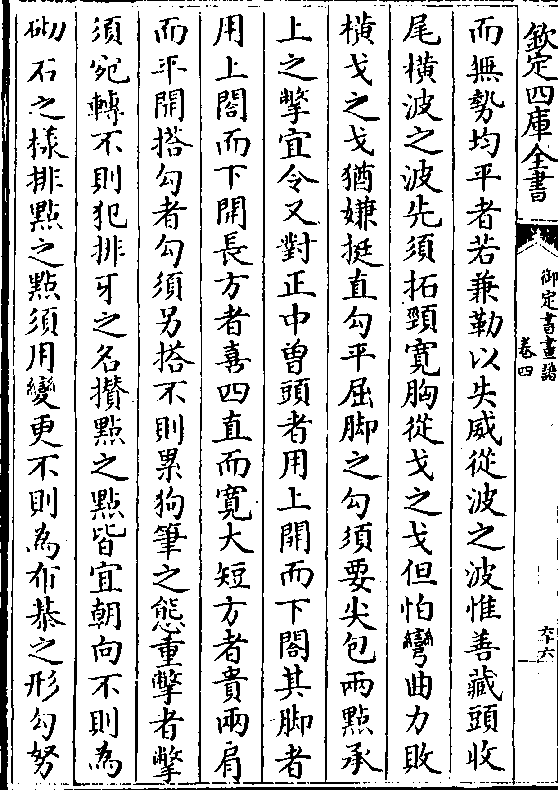 欽定四庫全書
御定書畫譜
卷四
六十六
而無勢均平者若兼勒以失威從波之波惟善藏頭收
尾橫波之波先須拓頸寬胸從戈之戈但怕彎曲力敗
橫戈之戈猶嫌挺直勾平屈脚之勾須要尖包兩點承
上之撆宜令叉對正中曽頭者用上開而下閤其脚者
用上閤而下開長方者喜四直而寛大短方者貴兩肩
而平開搭勾者勾須另搭不則累狗筆之態重撆者撆
須宛轉不則犯排牙之名攅點之點皆宜朝向不則為
砌石之樣排點之點須用變更不則為布棊之形勾努